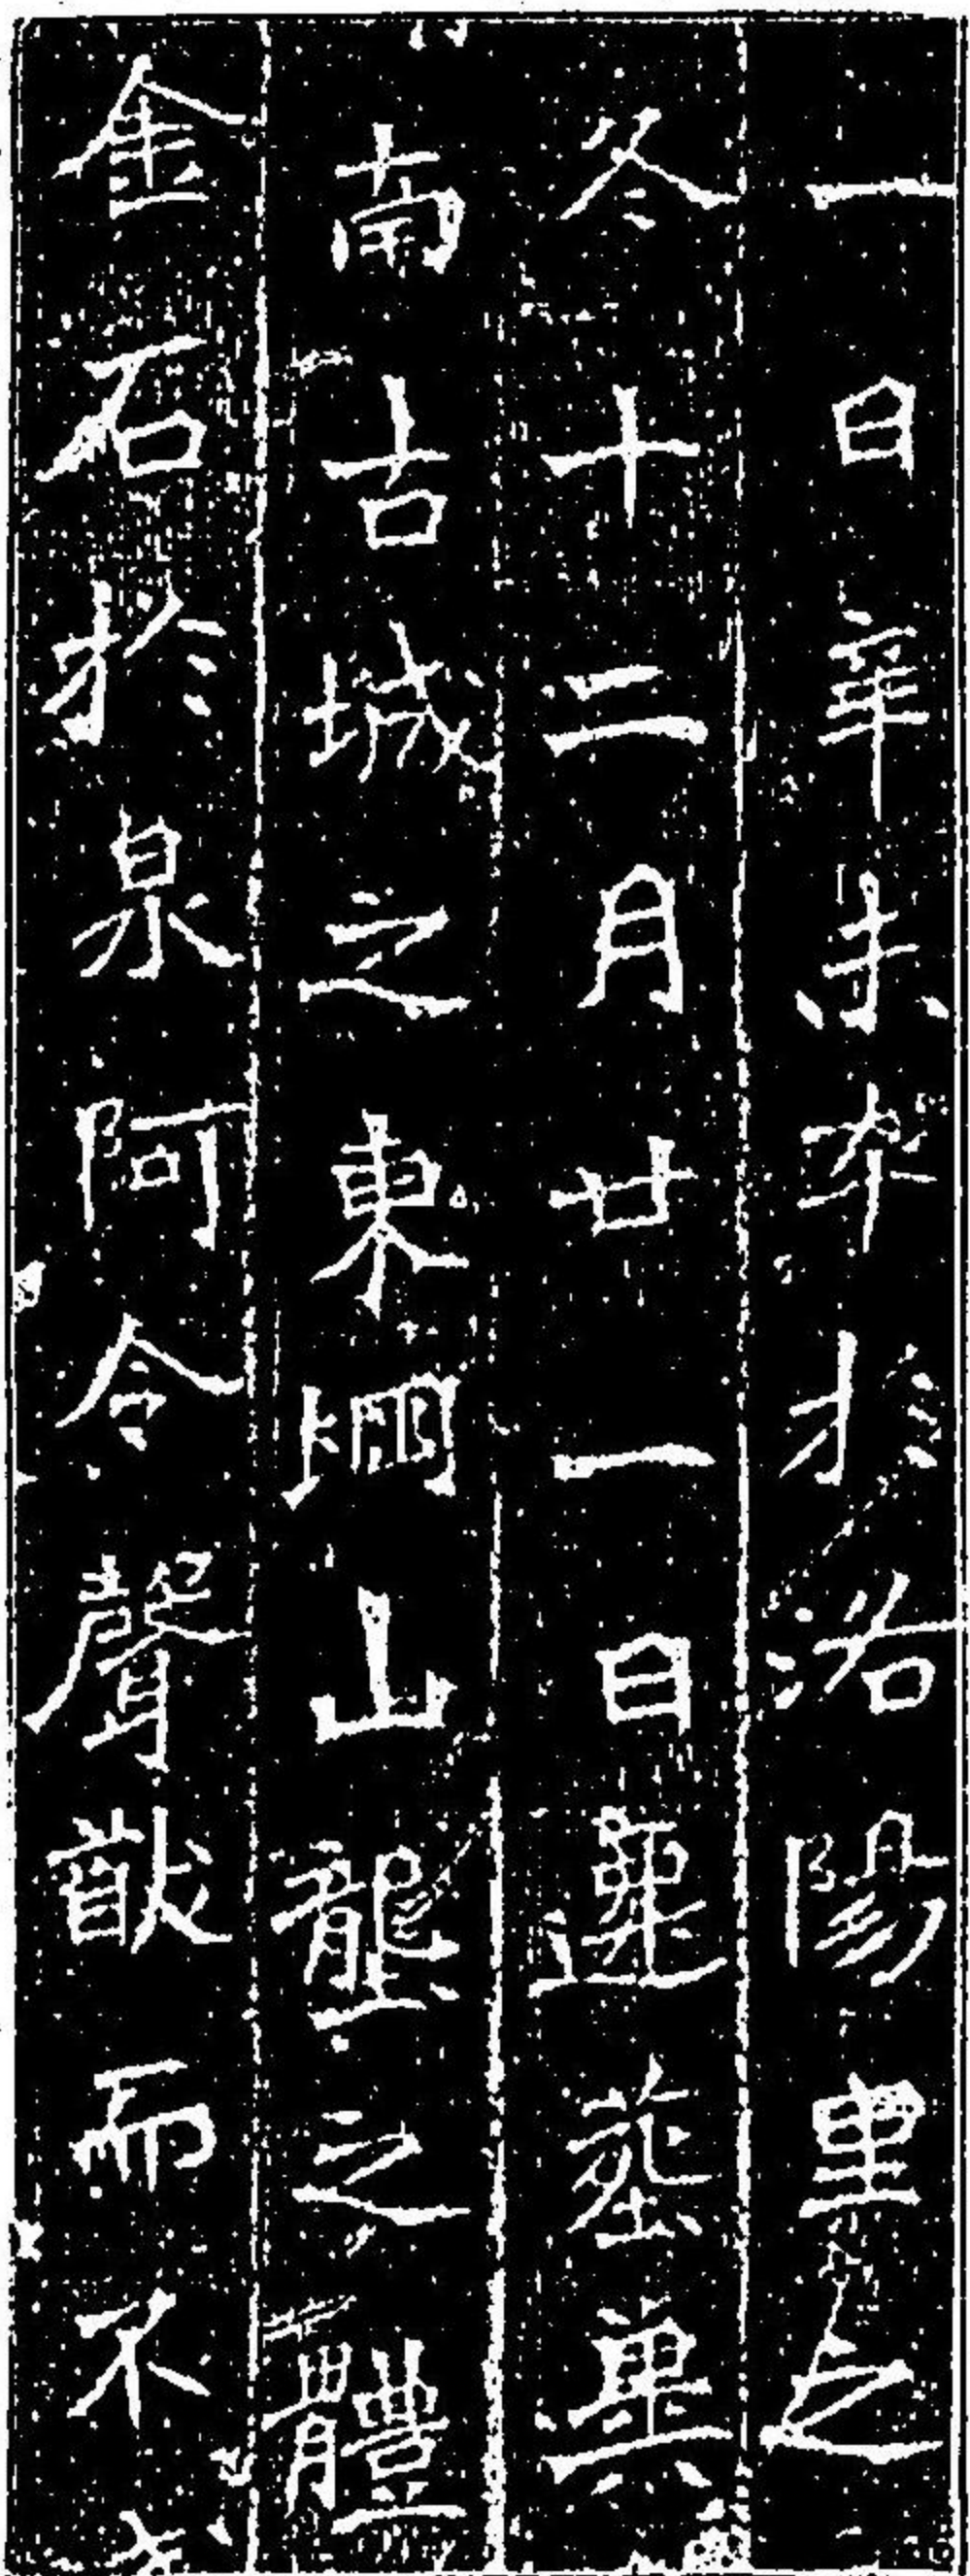 一日辛未卒於洛陽里之
冬十二月廿一日遷葬
南古城之東堈山龍之體
金石於泉阿令聲猷而不